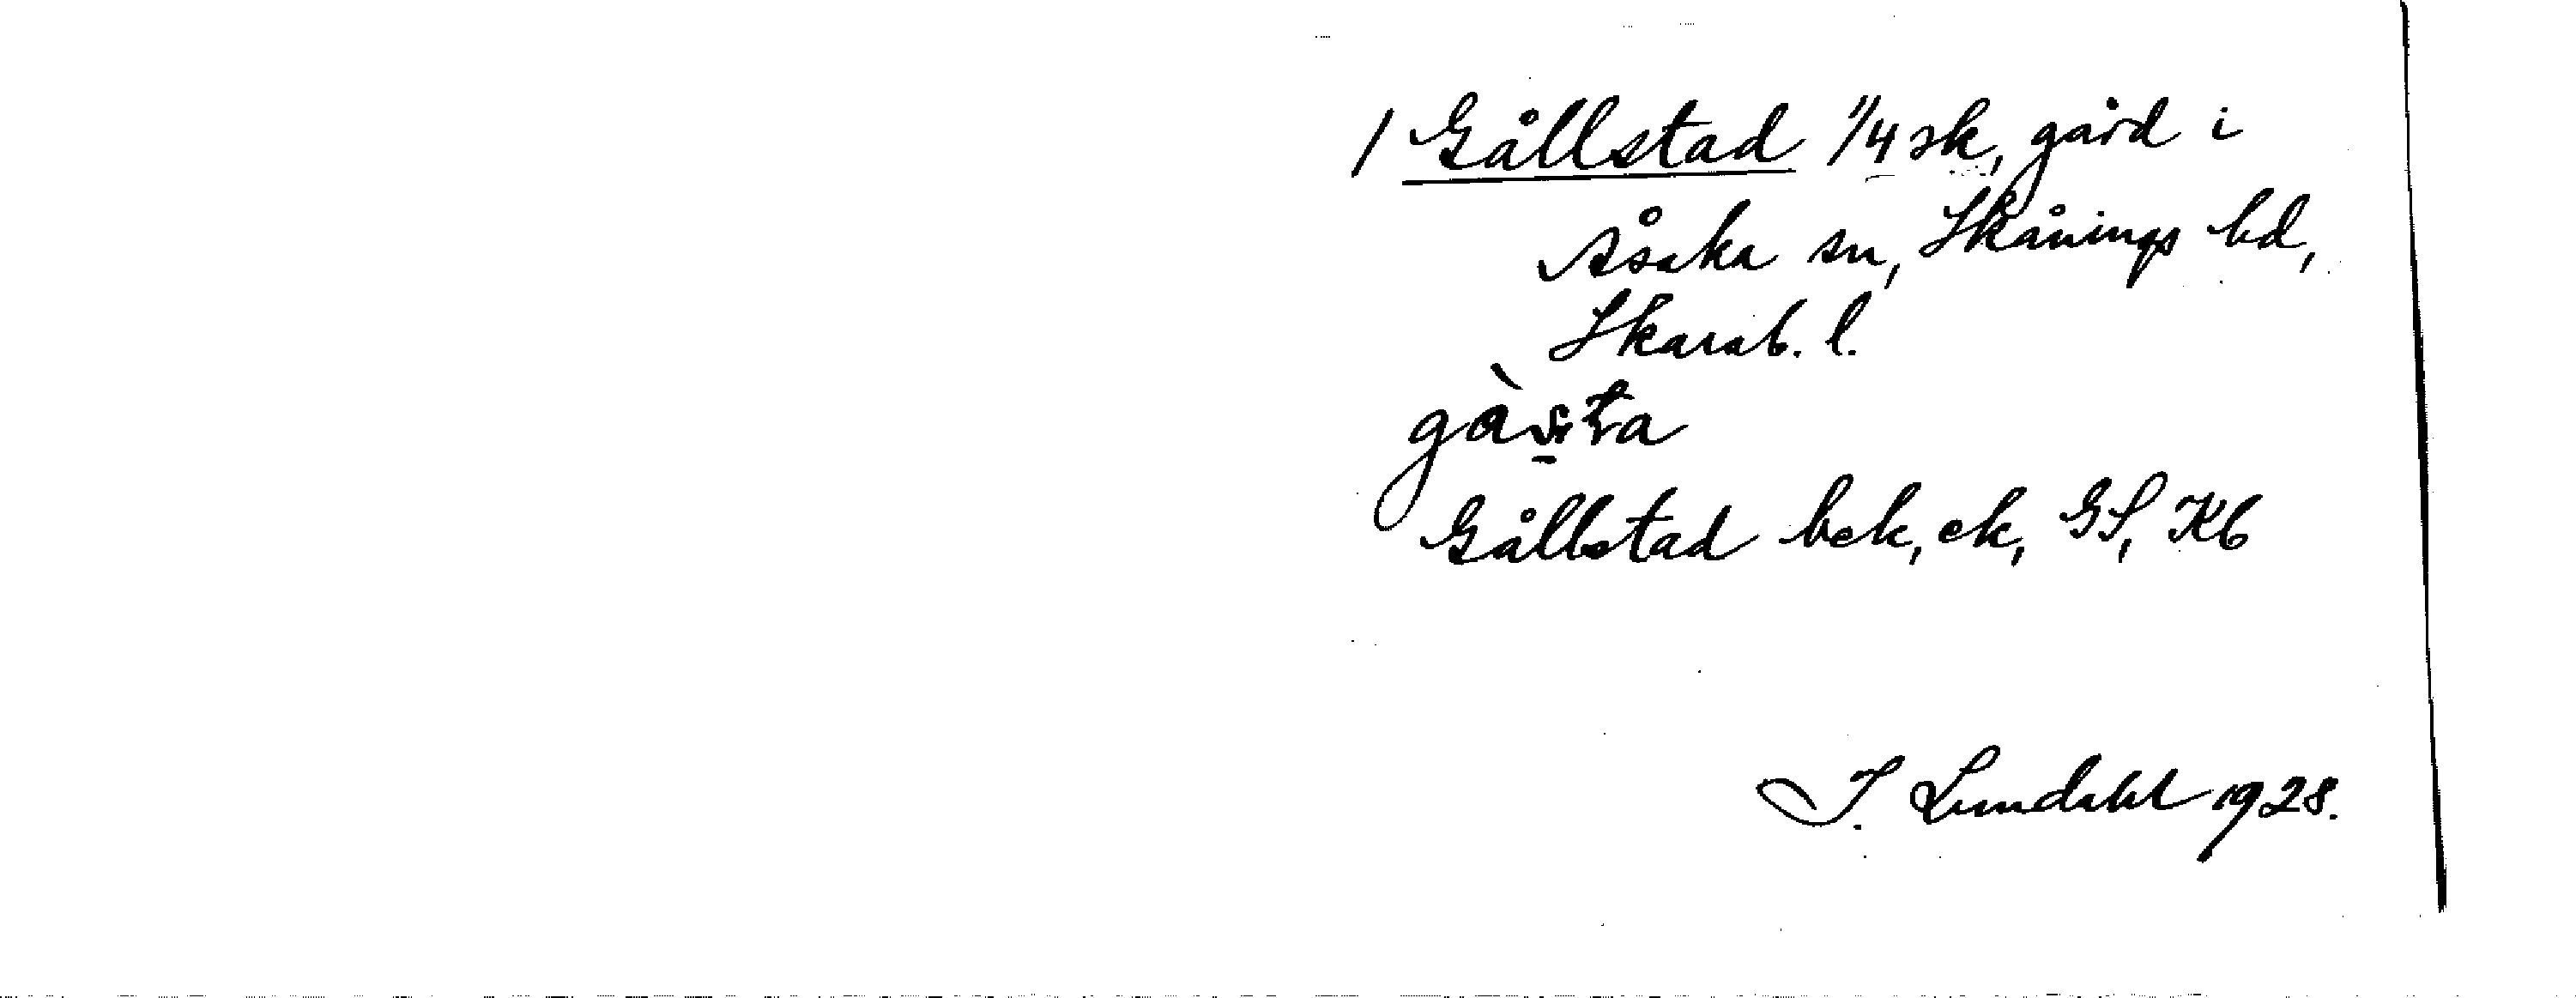 / Gållstad 1/4 sk, gård i
Åsaka sn, Skånings hd,
Skarab. l.
Gållstad bek, ek, GS, Kb
I. Lundahl 1928.